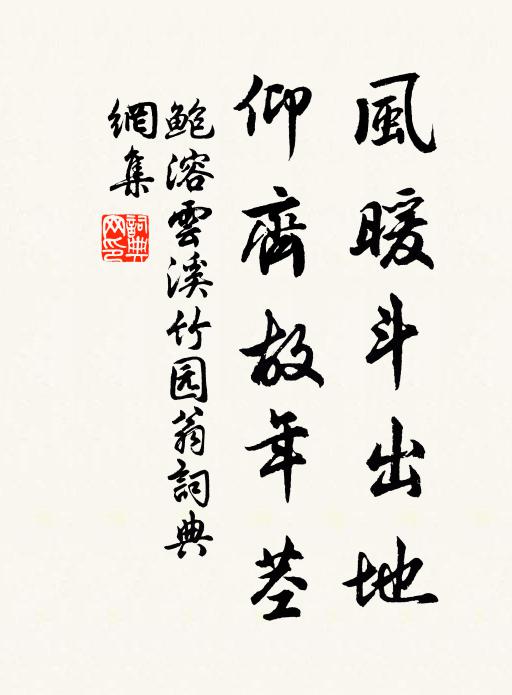 風暖斗出地
仰齊故年茎
鲍溶雲溪竹园翁詞典
網集
詞典
网印